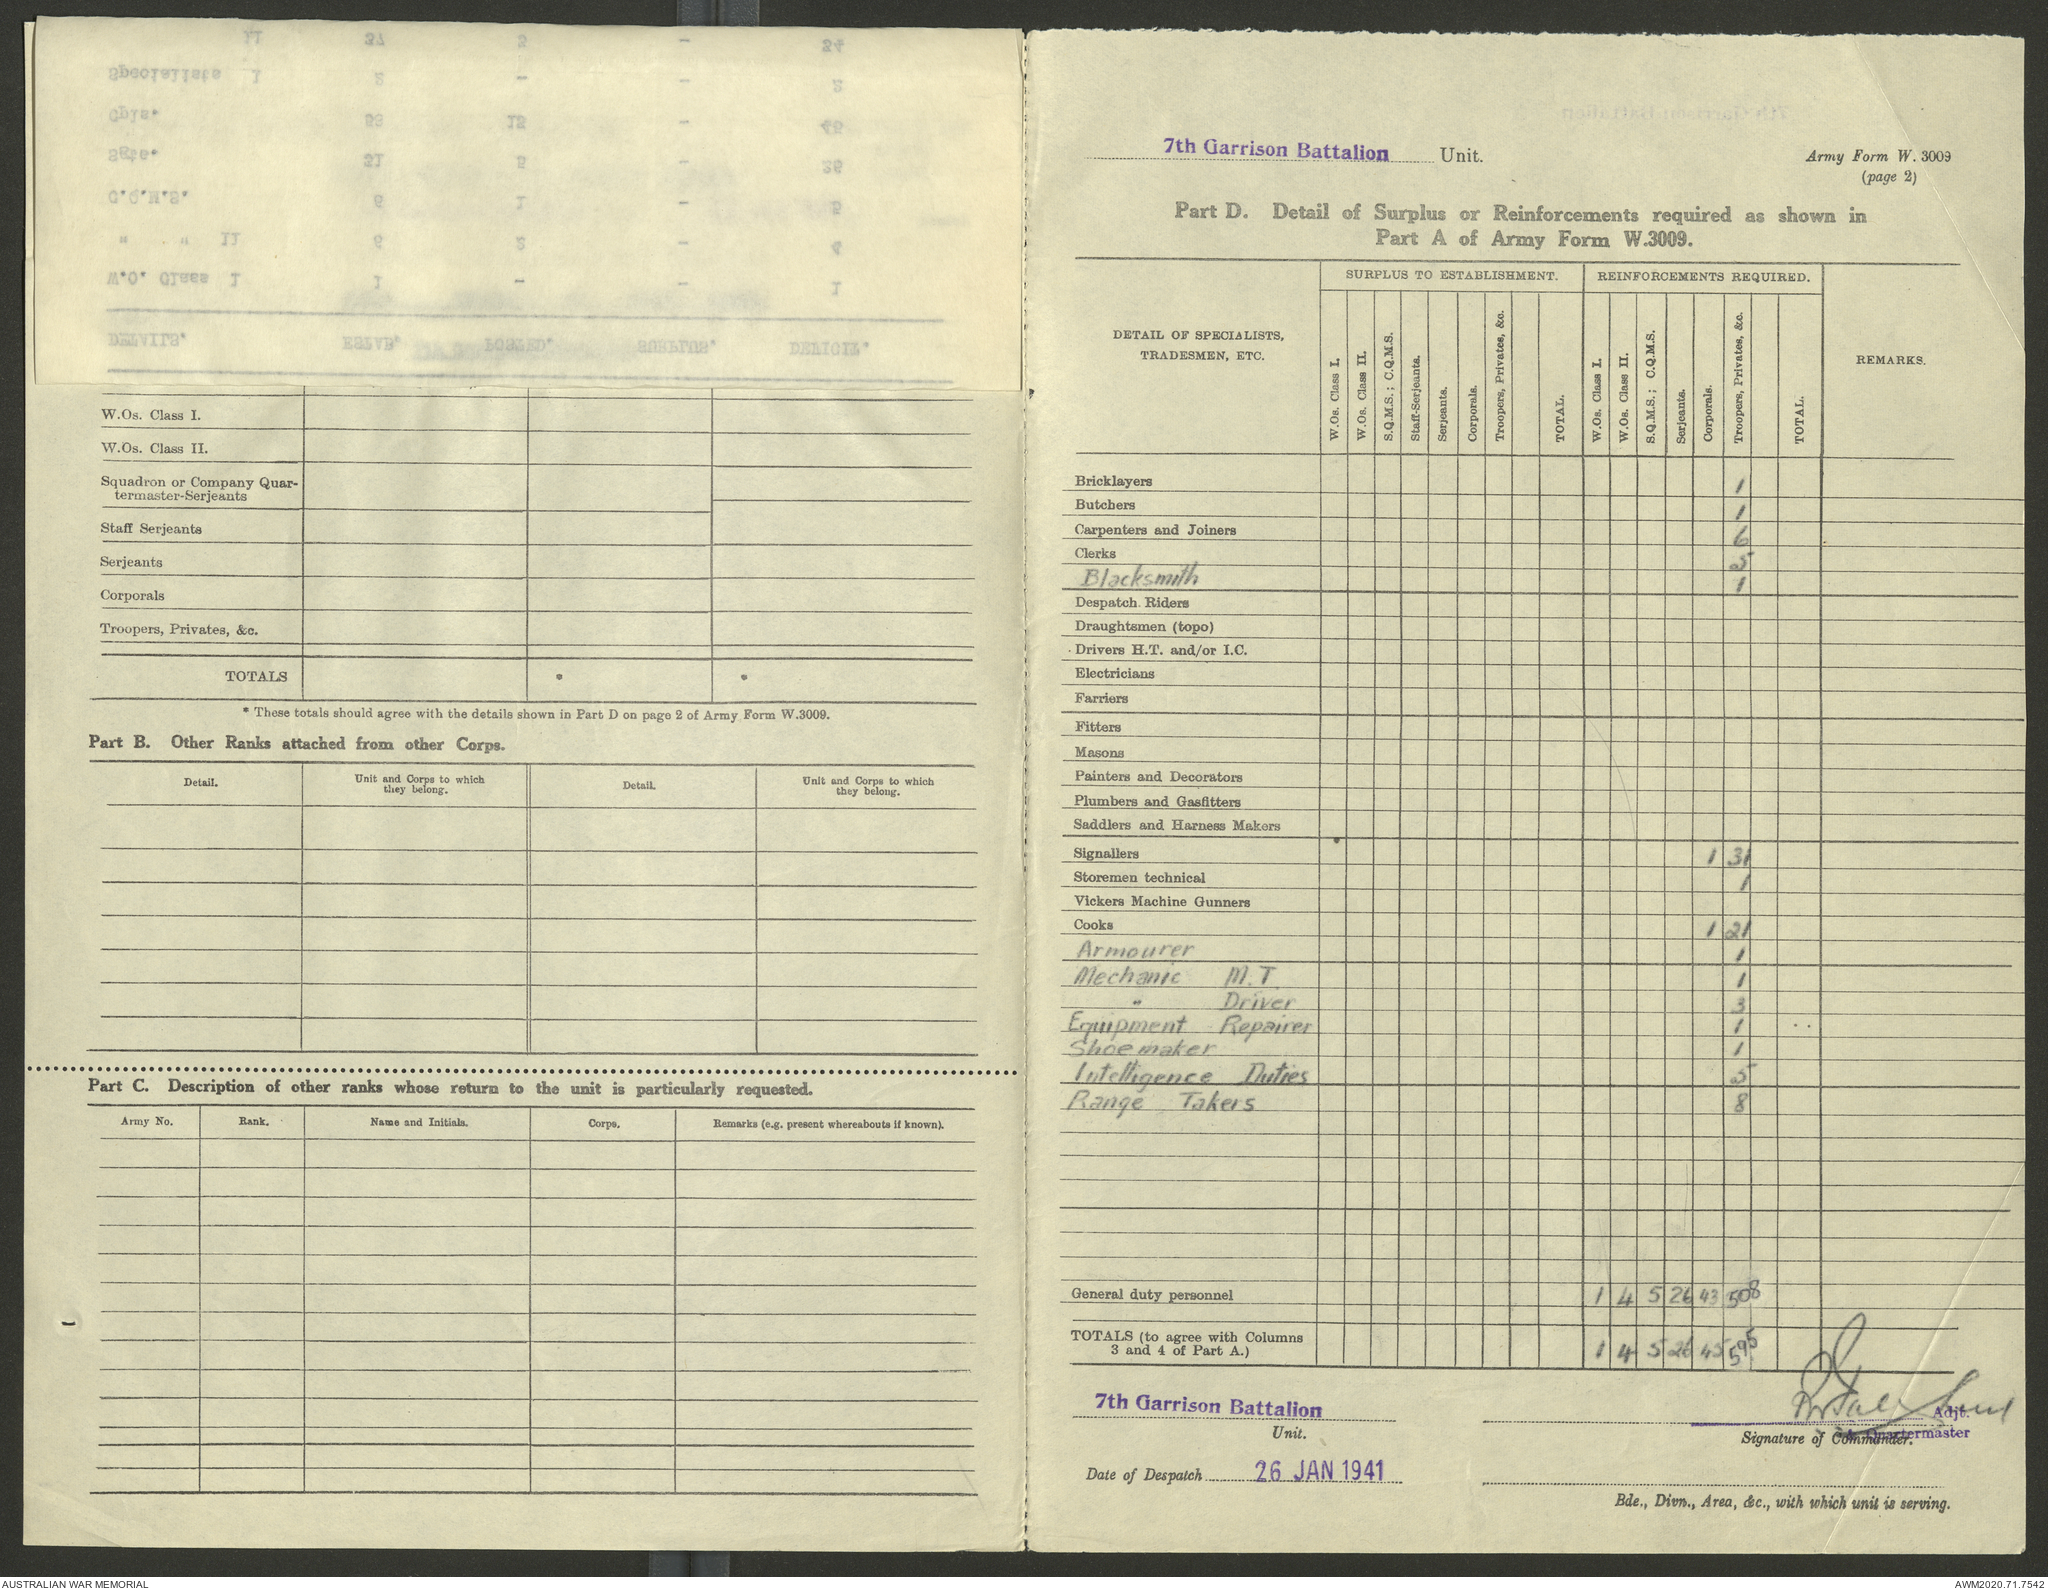 W.Os. Class I.
W.Os. Class II.
Squadron or Company Quar-
termaster-Serjeants
Staff Serjeants
Serjeants
Corporals
Troopers, Privates, &c.
TOTALS * *
* These totals should agree with the details shown in Part D on page 2 of Army Form W.3009.
Part B. Other Ranks attached from other Corps.
Detail. Unit and Corps to which they belong. Detail. Unit and Corps to which they belong.
Part C. Description of other ranks whose return to the unit is particularly requested.
Army No. Rank. Name and Initials. Corps. Remarks (e.g. present whereabouts if known).
7th Garrison Battalion Unit. Army Form W. 3009
(page 2)
Part D. Detail of Surplus or Reinforcements required as shown in
Part A of Army Form W.3009.
SURPLUS TO ESTABLISHMENT. REINFORCEMENTS REQUIRED.
DETAIL OF SPECIALISTS,
TRADESMEN, ETC.
W.Os. Class I. W.Os. Class II. S.Q.M.S.; C.Q.M.S. Staff-Serjeants. Serjeants. Corporals. Troopers, Privates, &c. TOTAL. W.Os. Class I. W.Os. Class II. S.Q.M.S.; C.Q.M.S. Serjeants. Corporals. Troopers, Privates, &c. TOTAL. REMARKS.
Bricklayers 1
Butchers 1
Carpenters and Joiners 6
Clerks 5
Blacksmith 1
Despatch Riders
Draughtsmen (topo)
Drivers H.T. and/or I.C.
Electricians
Farriers
Fitters
Masons
Painters and Decorators
Plumbers and Gasfitters
Saddlers and Harness Makers
Signallers 1 31
Storemen technical 1
Vickers Machine Gunners
Cooks 1 21
Armourer 1
Mechanic M.T 1
" Driver 3
Equipment Repairer 1
Shoemaker 1
Intelligence Duties 5
Range Takers 8
General duty personnel 1 4 5 26 43 508
TOTALS (to agree with Columns
3 and 4 of Part A.) 1 4 5 26 45 595
7th Garrison Battalion
Unit.
Adjt.
Signature of Commander. & Quartermaster
Date of Despatch 26 JAN 1941
Bde., Divn., Area, &c., with which unit is serving.
AUSTRALIAN WAR MEMORIAL AWM2020.71.7542